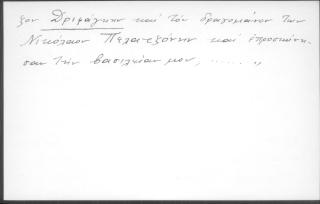 ξον Δριφάγκην καὶ τὸν δραγομάνον των
Νικόλαον Πελατεξόνην καὶ ἐπροσκύνη-
σαν τὴν βασιλείαν μου, ...... "